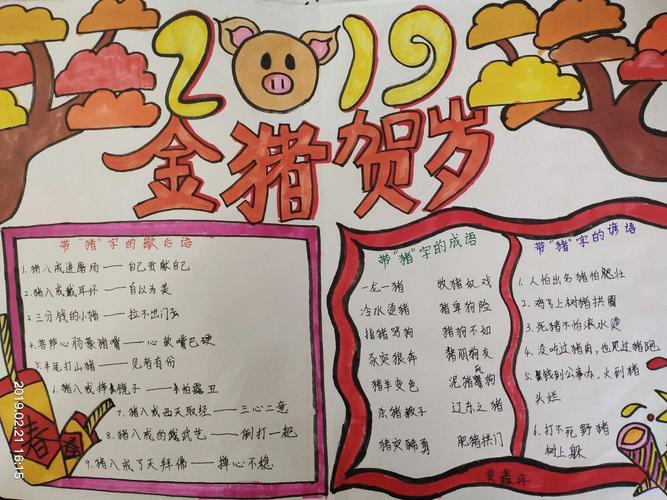 2019
金猪贺岁
带"猪"字的歇后语
1.猪八戒进屠场——自己贡献自己
2.猪八戒戴耳环——自以为美
3.三分钱的小猪——拉不出门去
4.菩萨心肠豪猪嘴——心软嘴巴硬
5.年尾打山猪——见者有份
6.猪八戒摔镜子——怕露丑
7.猪八戒西天取经——三心二意
8.猪八戒的武艺——倒打一耙
9.猪八戒了天拜佛——捧心不稳
带"猪"字的成语
一龙一猪
牧猪奴戏
冷水烫猪
猪卑狗险
指猪骂狗
猪狗不如
豕突狼奔
猪朋狗友
猪羊变色
泥猪瓦狗
杀猪教子
辽东之猪
猪突豨勇
肥猪拱门
带"猪"字的谚语
1.人怕出名猪怕肥壮
2.鸡飞上树猪拱圈
3.死猪不怕滚水烫
4.没吃过猪肉,也见过猪跑
5.钱到公事办,火到猪
头烂
6.打不死野猪
树上歇
春
春
2019.02.21 16:15